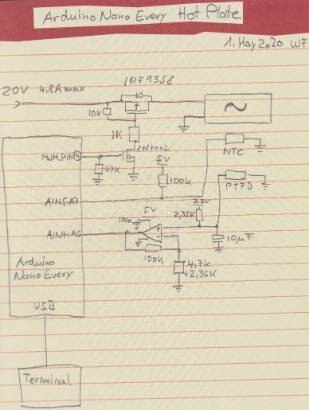 Arduino Nano Every Hot Plate
1. May 2020 WF
20V 4.8A max
IRF9358
10k
1K
2N7002
PWM, PIN
47K
5V
100k
NTC
AIN5, A7
2,35K
PTFD
AIN4, A6
5V
10µF
100k
4,7K
+2,36K
Arduino
Nano Every
USB
Terminal